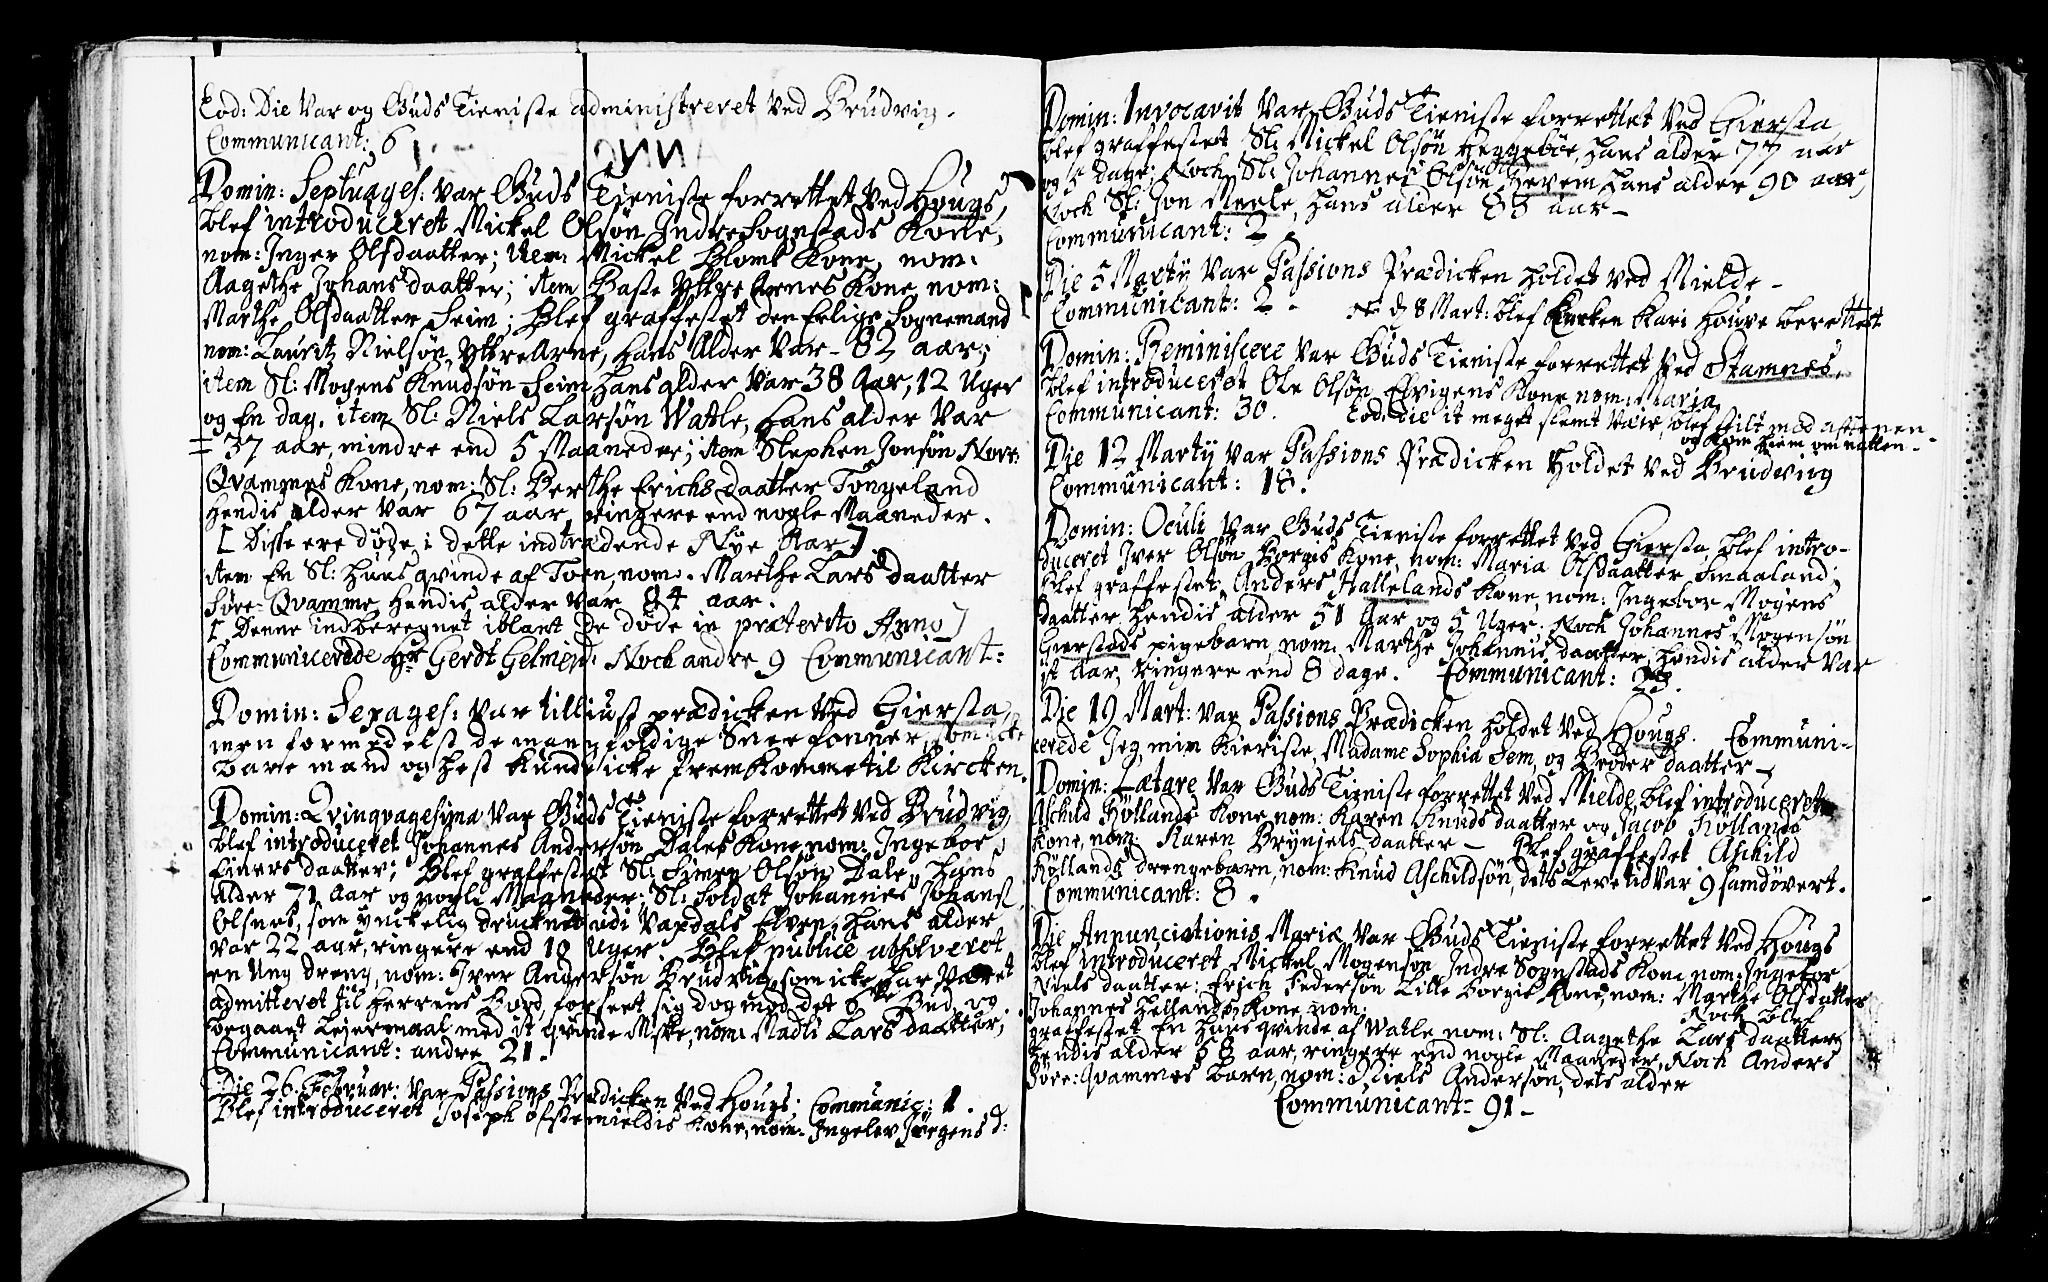 Eod: Die var og Guds Tieniste administreret ved Brudvig.
Communicant: 6
Domin: Septuages: var Guds Tieniste forrettet ved Hougs,
blef introduceret Mickel Olsøn Indre Sognstads Kone,
nom: Inger Olsdaatter; item Mickel Blomb Kone, nom:
Aagethe Johansdaatter; item Baste Yttre Arnes Kone nom:
Marthe Olsdaatter Seim; Blef graffestet den Erlige Sognemand
nom: Lauritz Nielsøn, Yttre Arne, hans Alder var 82 aar;
item Sl: Mogens Knudsøn Seim hans alder var 38 Aar, 12 Uger
og En dag, item Sl: Niels Larsøn Watle, hans alder var
37 aar, mindre end 5 Maaneder; item Stephen Jonsøn Norr:
Qvammes Kone, nom: Sl: Berthe Erichsdaatter Tongeland
hendis alder var 67 aar, ringere end nogle Maaneder.
[ Disse ere døde i dette indtrædende Nye Aar ]
item En Sl: huusqvinde af Toen, nom: Marthe Larsdaatter
Søre-Qvamme, hendis alder var 84 aar.
[ Denne indberegnet iblant de døde in præterito Anno ]
Communicerede Hr Gerdt Gelmeyd: Noch andre 9 Communicant:
Domin: Sexages: var tilliust prædicken ved Giersta,
men formedelst de mangfoldige Sneefonner, som icke
bare mand og hest kunde icke fremkomme til Kircken.
Domin: Qvinqvagesima var Guds Tieniste forrettet ved Brudvig
blef introduceret Johannes Andersøn Dales Kone, nom: Ingebor
Einersdaatter; Blef graffestet Sl: Simen Olsøn Dale, hans
alder 71 aar og nogle Maaneder; Sl: Soldat Johannes Johans:
Olsnes, som ynckelig drucknet udi Vaxdals Elven, hans alder
var 22 aar, ringere end 18 Uger. Blef publice absolveret
en Ung dreng, nom: Iver Andersøn Brudvig, som icke har været
admitteret til Herrens bord, forseet sig dog mod det 6te Bud, og
begaaet Leiermaal med it qvinde Miske, nom: Madli Larsdaatter;
Communicant: andre 21.
Die 26. Februar: var Passions Prædicken ved Hougs; Communic: 1.
Blef introduceret Joseph Ofstemieldis Kone, nom: Ingelev Jørgens d:
Domin: Invocavit var Guds Tieniste forrettet ved Giersta,
blef graffestet Sl: Mickel Olsøn Heggebøe, hans alder 77 aar
og 5 dage; Noch Sl: Johannes Olsøn Hevem hans alder 90 aar,
Noch Sl: Jon Neele, hans alder 83 aar -
Communicant: 2
Die 5 Martij var Passions Prædicken holdet ved Mielde -
Communicant: 2 - d 8 Mart: blef Kari Houve berettet
Domin: Reminiscere var Guds Tieniste forrettet ved Stamnes,
blef introduceret Ole Olsøn Elvigens Kone nom: Maria
Communicant: 30. Eod: die it meget slemt Væir, blef stilt mod aftenen -
og kom hiem om natten -
Die 12 Martij var Passions Prædicken Holdet ved Brudvig
Communicant: 18.
Domin: Oculi var Guds Tieniste forrettet ved Giersta, blef intro-
duceret Iver Olsøn Borges Kone, nom: Maria Olsdaatter Smaaland;
blef graffestet Anders Hallelands Kone, nom: Ingebor Mogens
daatter, hendis alder 51 Aar og 5 Uger. Noch Johannes Mogensøn
Gierstads pigebarn, nom: Marthe Johannisdaatter, hendis alder var
it Aar, ringere end 8 dage. Communicant: 23.
Die 19 Mart: var Passions Prædicken holdet ved Hougs. Communi-
cerede Jeg, min Kieriste, Madame Sophia Sem, og Broder daatter -
Domin: Lætare var Guds Tieniste forrettet ved Mielde, blef introduceret
Aschild Høllands Kone, nom: Karen Knudsdaatter og Jacob Høllands
Kone, nom: Karen Brynjelsdaatter - Blef graffestet Aschild
Høllands drengebarn, nom: Knud Aschildsøn, dets Levetid var 9 samdøvert.
Communicant: 8.
Die Annunciationis Mariæ var Guds Tieniste forrettet ved Hougs
blef introduceret Mickel Mogensøn Indre Sognstads Kone, nom: Ingebor
Nielsdaatter; Erich Pedersøn Lille Borgis Kone, nom: Marthe Olsdatter
Johannes Hellands Kone nom: Noch blef
graffestet En huusqvinde af Watle nom: Sl: Aagethe Larsdaatter
hendis alder 58 aar, ringere end nogle Maaneder, Noch Anders
Søre-Qvammes barn, nom: Niels Andersøn, dets alder
Communicant: 91 -